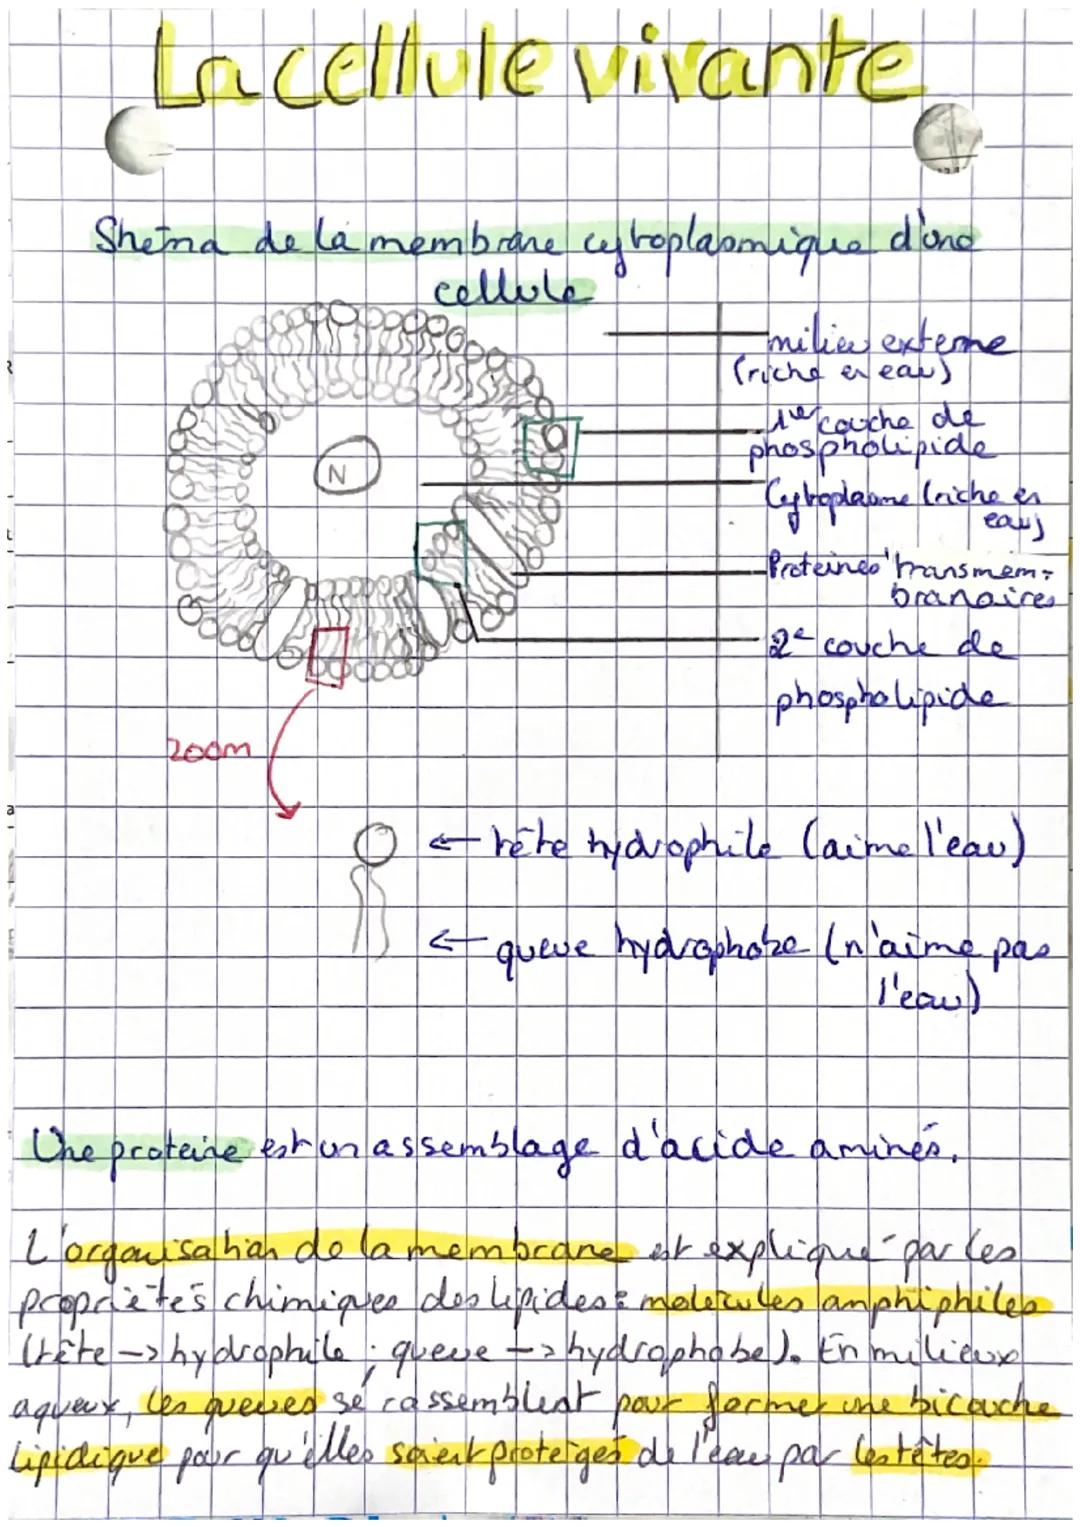 La cellule vivante
Shema de la membrane cytoplasmique d'une
cellule
milieu externe
(riche en eau)
1re couche de
phospholipide
Cytoplasme (riche en
eau)
N
Proteines transmem-
branaires
2e couche de
phospholipide
zoom
← tête hydrophile (aime l'eau)
← queue hydrophobe (n'aime pas
l'eau)
Une proteine est un assemblage d'acide aminés.
L'organisation de la membrane est expliqué par les
propriétés chimiques des lipides : molécules amphiphiles
(tête -> hydrophile ; queue -> hydrophobe). En milieux
aqueux, les queues se rassemblent pour former une bicouche
lipidique pour qu'elles soient protégés de l'eau par les têtes.